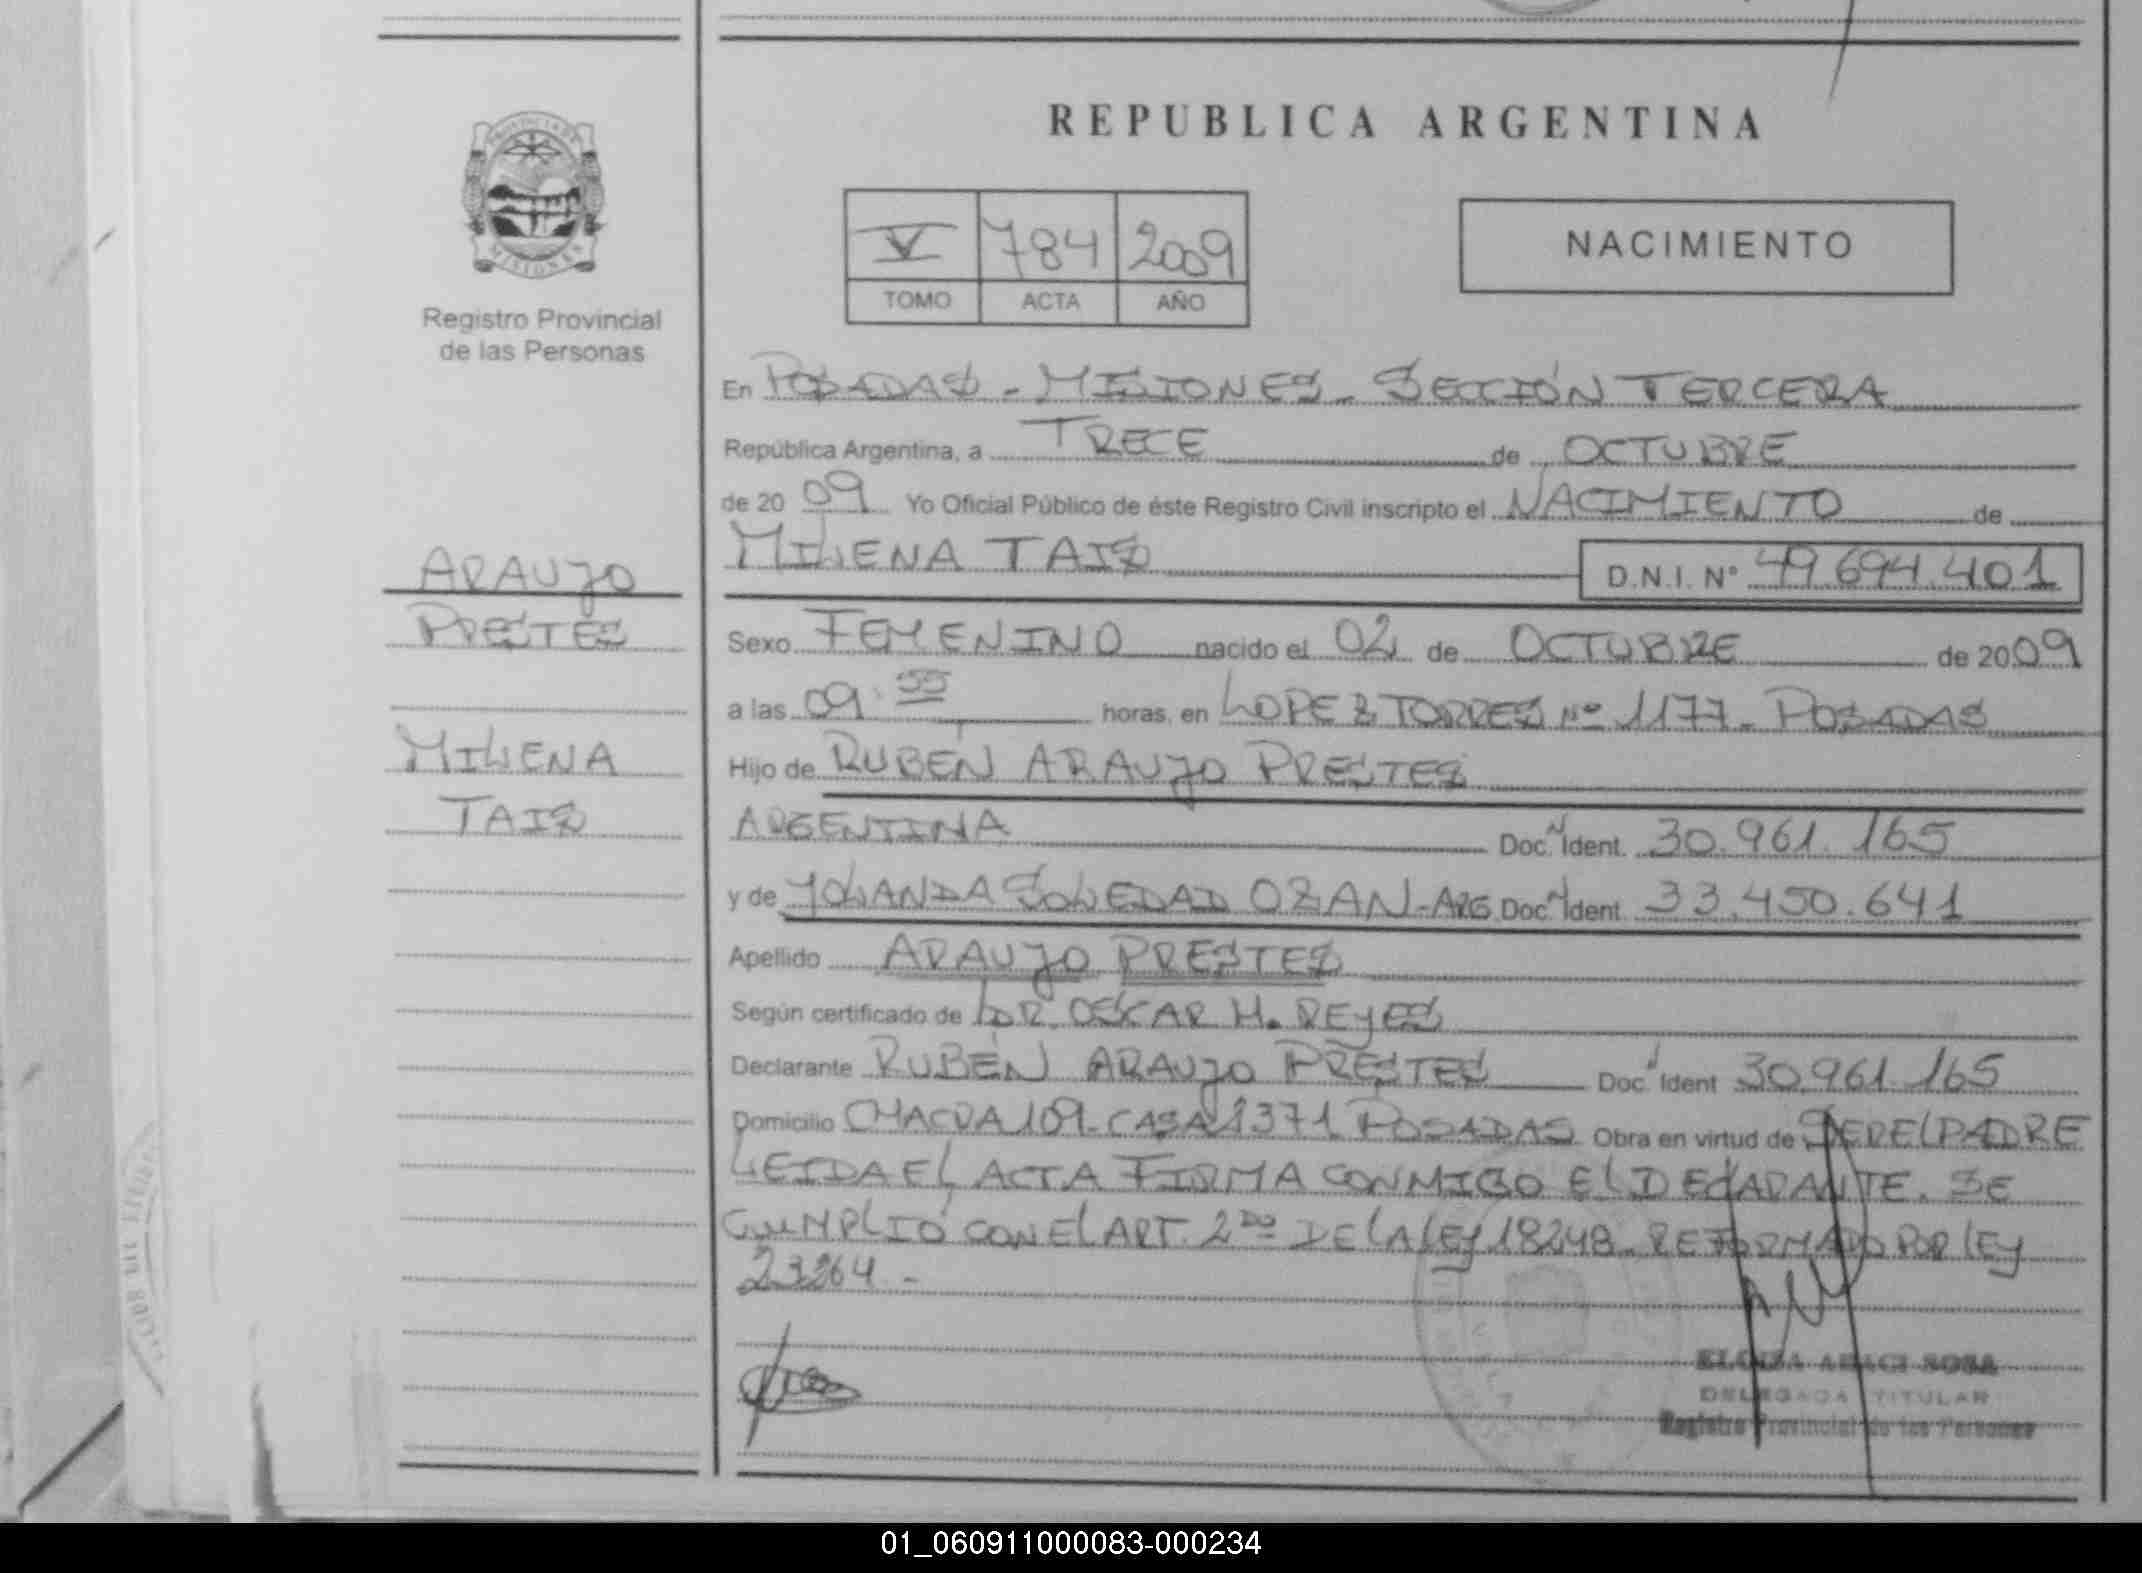 PROVINCIA DE
MISIONES
Registro Provincial
de las Personas
ARAUJO
PRESTES
MILENA
TAIS
REPUBLICA ARGENTINA
V 784 2009
TOMO ACTA AÑO
NACIMIENTO
En POSADAS - MISIONES - SECCIÓN TERCERA
República Argentina, a TRECE de OCTUBRE
de 2009 Yo Oficial Público de éste Registro Civil inscripto el NACIMIENTO de
MILENA TAIS D.N.I. Nº 49.694.401
Sexo FEMENINO nacido el 02 de OCTUBRE de 2009
a las 09:55 horas, en LOPEZ TORRES Nº 1177 - POSADAS
Hijo de RUBÉN ARAUJO PRESTES
ARGENTINA Doc. N Ident. 30.961.165
y de YOLANDA SOLEDAD OZAN - ARG Doc. N Ident. 33.450.641
Apellido ARAUJO PRESTES
Según certificado de DR. OSCAR H. REYES
Declarante RUBÉN ARAUJO PRESTES Doc. N Ident 30.961.165
Domicilio CHACRA 109 - CASA 1371 POSADAS Obra en virtud de SER EL PADRE
LEIDA EL ACTA FIRMA CONMIGO EL DECLARANTE. SE
CUMPLIÓ CON EL ART. 2DO DE LA LEY 18248 REFORMADO POR LEY
23264 -
ARACI SOSA
DELEGADA TITULAR
Registro Provincial de las Personas
01_060911000083-000234